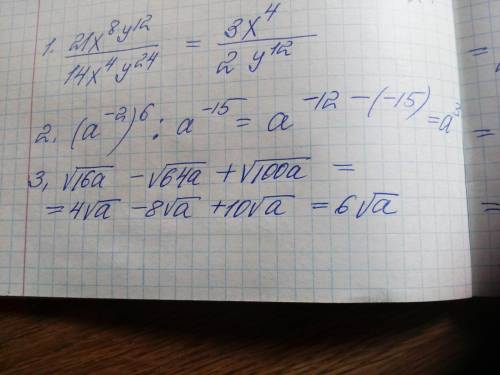 1. 21x⁸y¹² / 14x⁴y²⁴ = 3x⁴ / 2y¹²
2. (a⁻²)⁶ : a⁻¹⁵ = a⁻¹²⁻⁽⁻¹⁵⁾ = a³
3. √16a - √64a + √100a =
= 4√a - 8√a + 10√a = 6√a